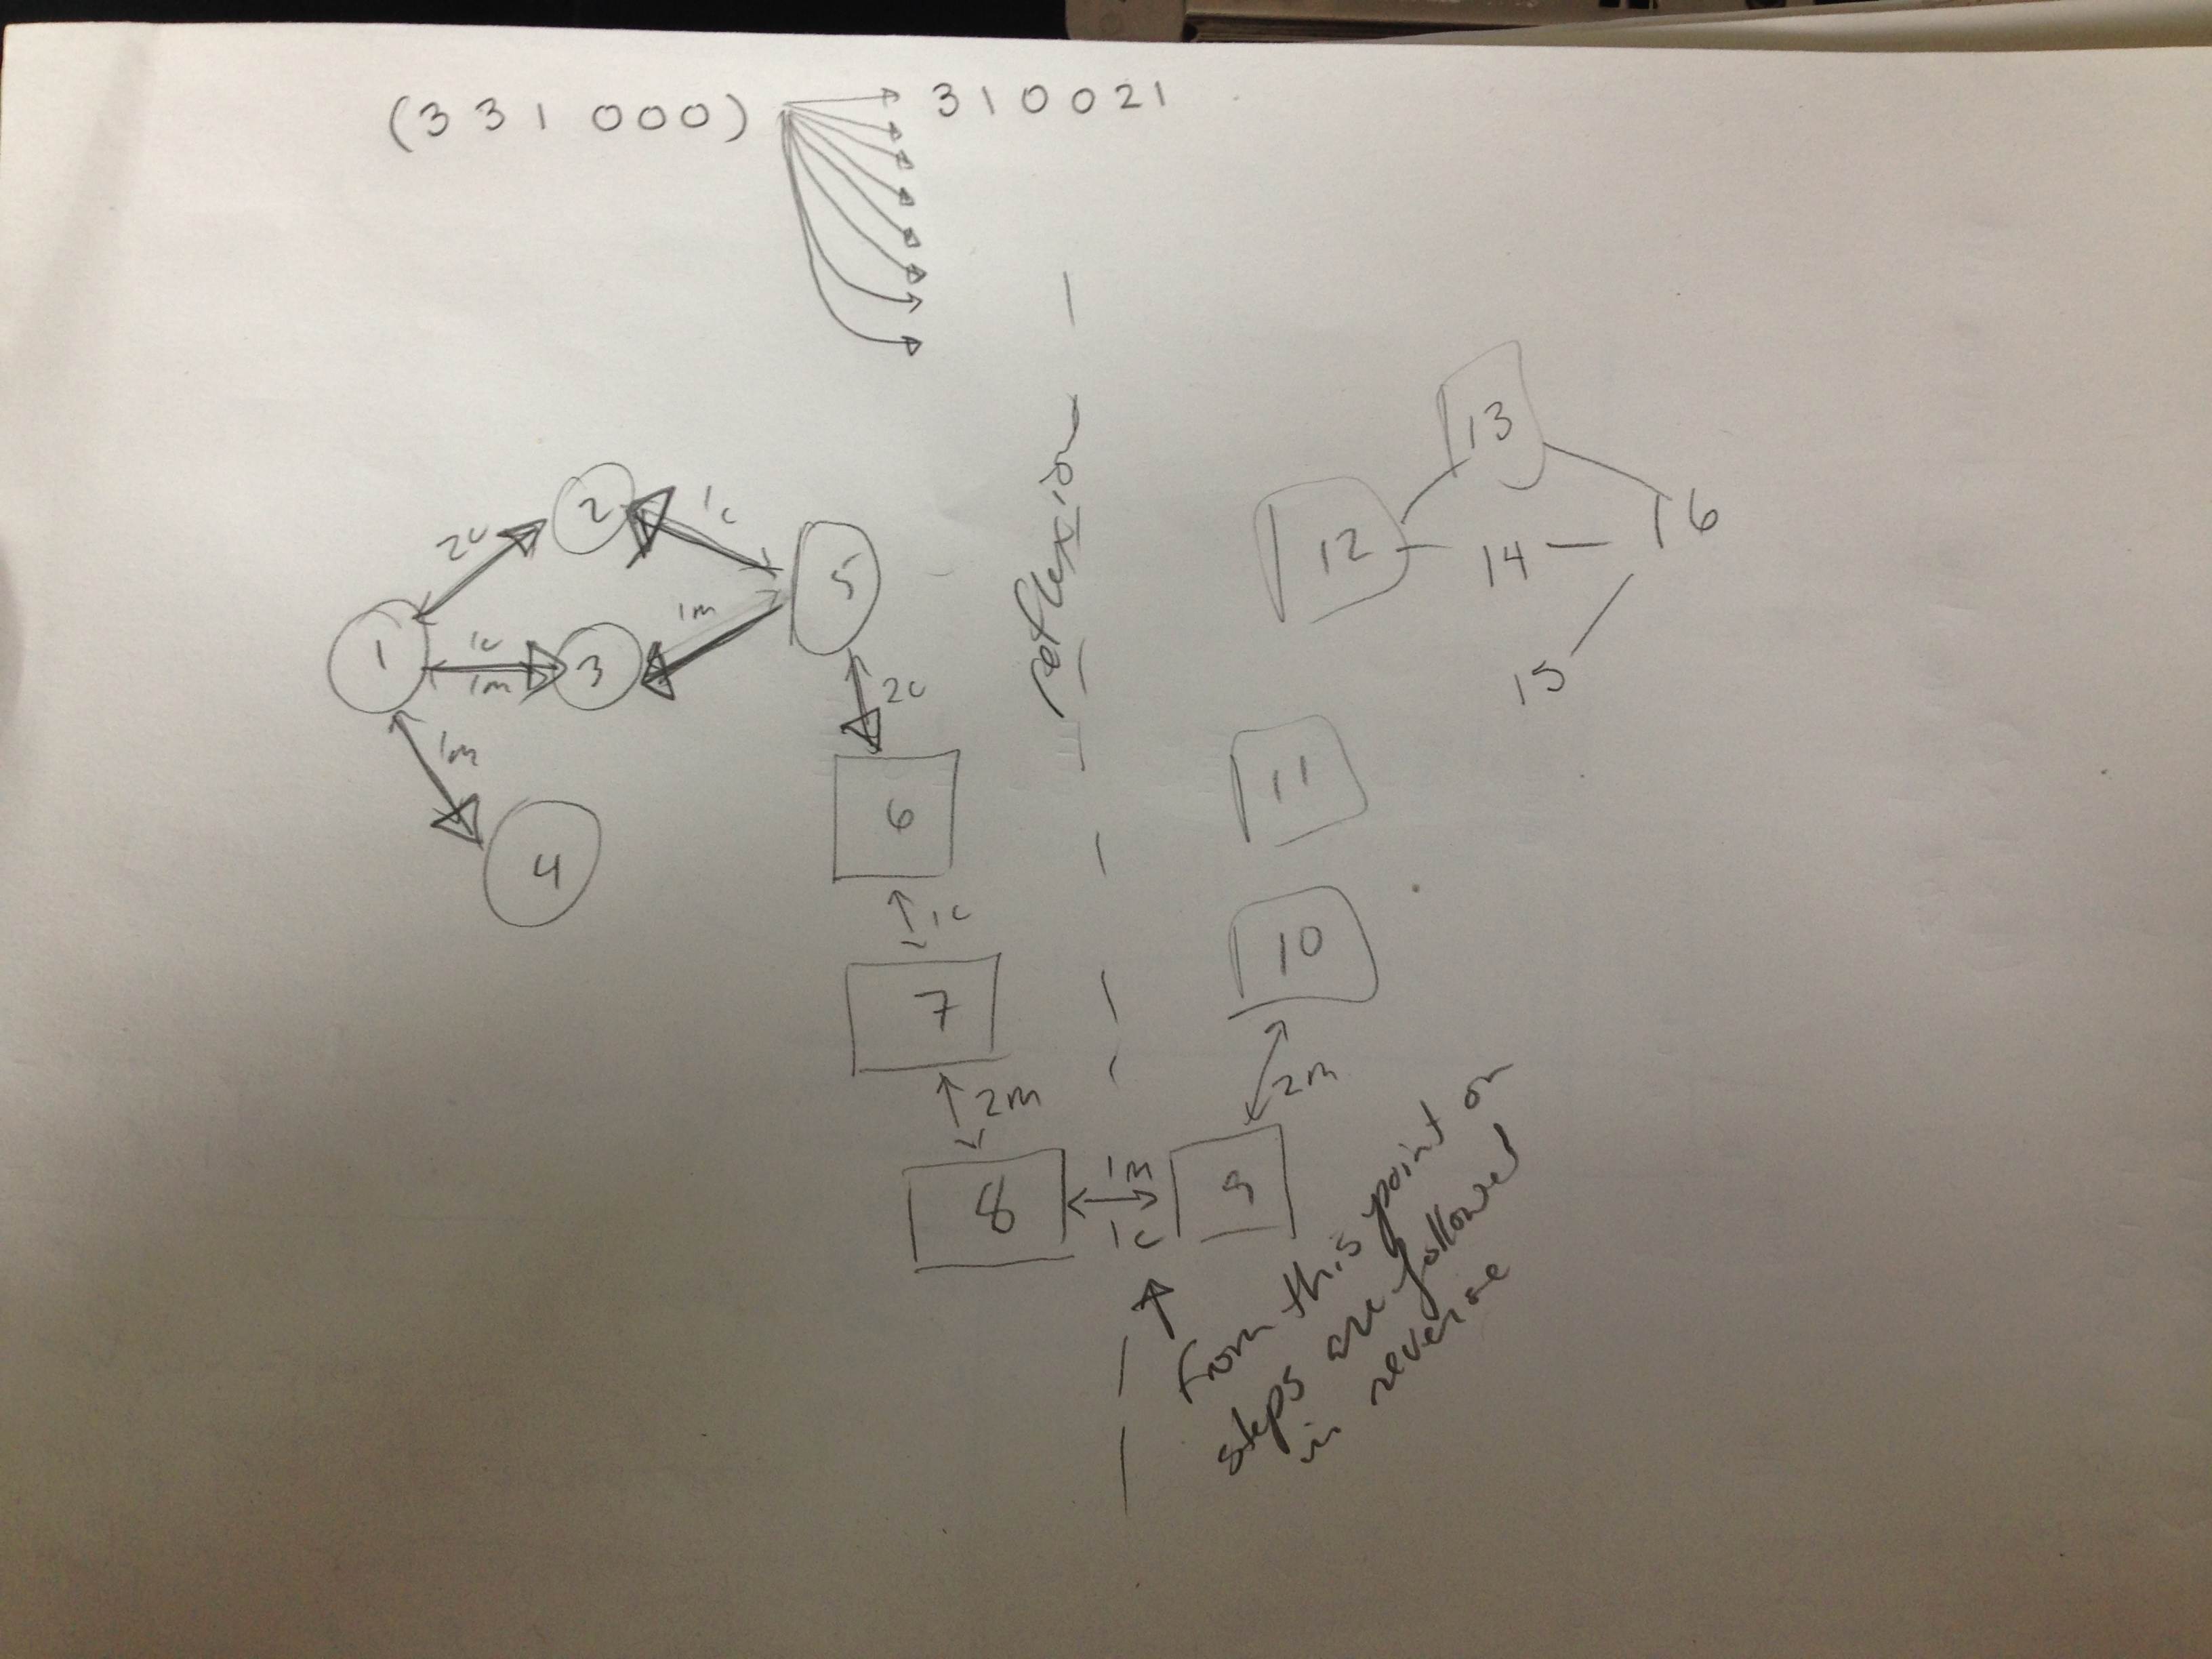 (331000) 310021
2c
1c
1c
1m
1m
1m
1
2
3
4
5
2c
6
1c
7
2m
8
reflexion
1m
1c
9
2m
10
11
12
13
14
15
16
From this point on
steps are followed
in reverse